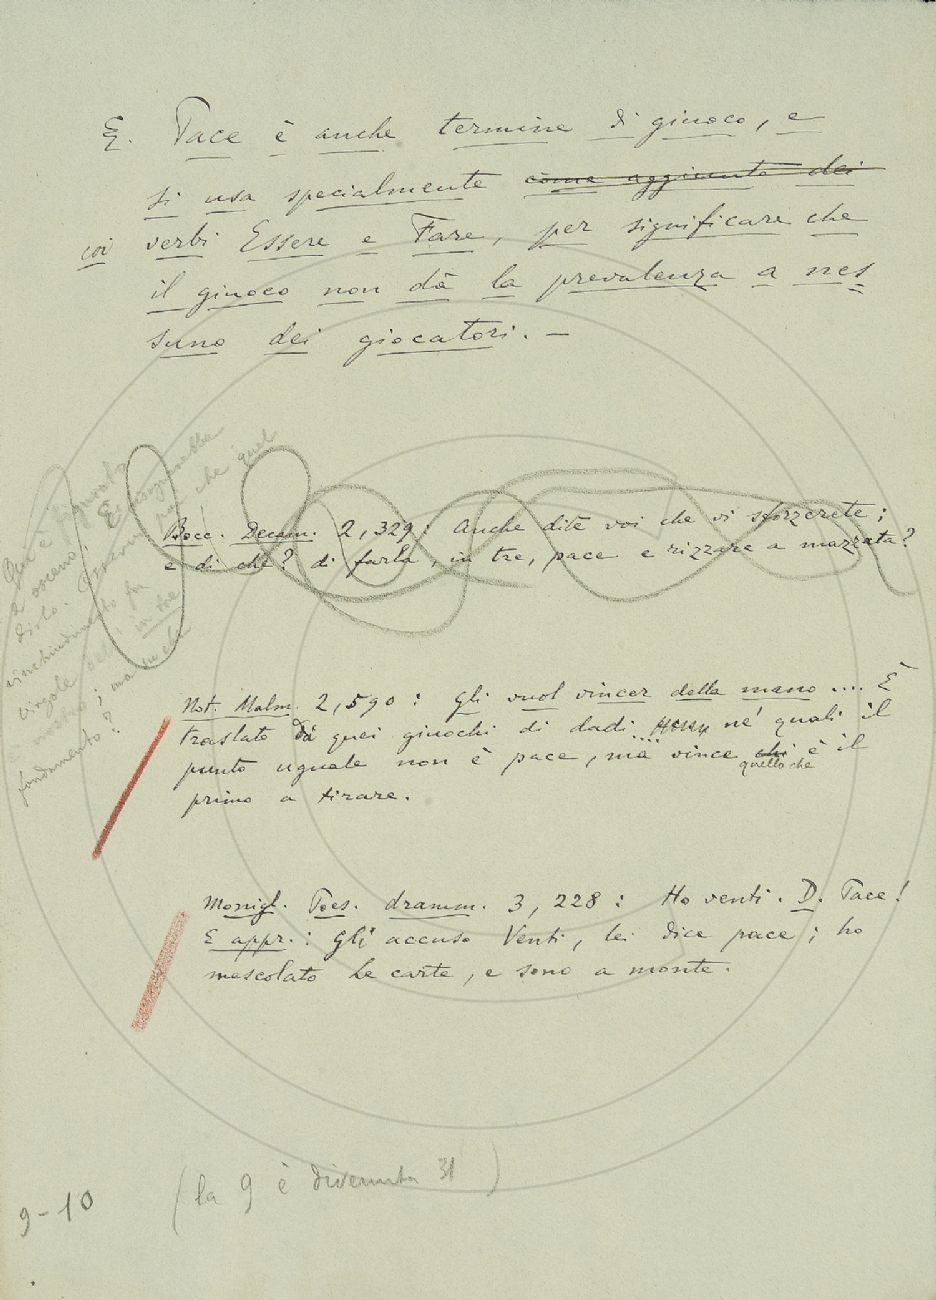 E. Pace è anche termine di giuoco, e
si usa specialmente come aggiunto dei
coi verbi Essere e Fare, per significare che
il giuoco non dà la prevalenza a nes
suno dei giocatori. —
Bocc. Decam. 2,329: Anche dite voi che vi sforzerete;
e di che? di farla, in tre, pace e rizzare a mazzata?
Qui è figurato
e osceno!
dirlo.
virgole in tre
; ma su che
fondamento?
Not. Malm. 2,590: Gli vuol vincer della mano .... È
traslato da quei giuochi di dadi .... ne' quali il
punto uguale non è pace, ma vince chi è il
quello che
primo a tirare.
Monigl. Poes. dramm. 3,228: Ho venti. D. Pace!
E appr.: Gli accuso Venti, lei dice pace; ho
mescolato le carte, e sono a monte.
(la 9 è divenuta 31)
9-10